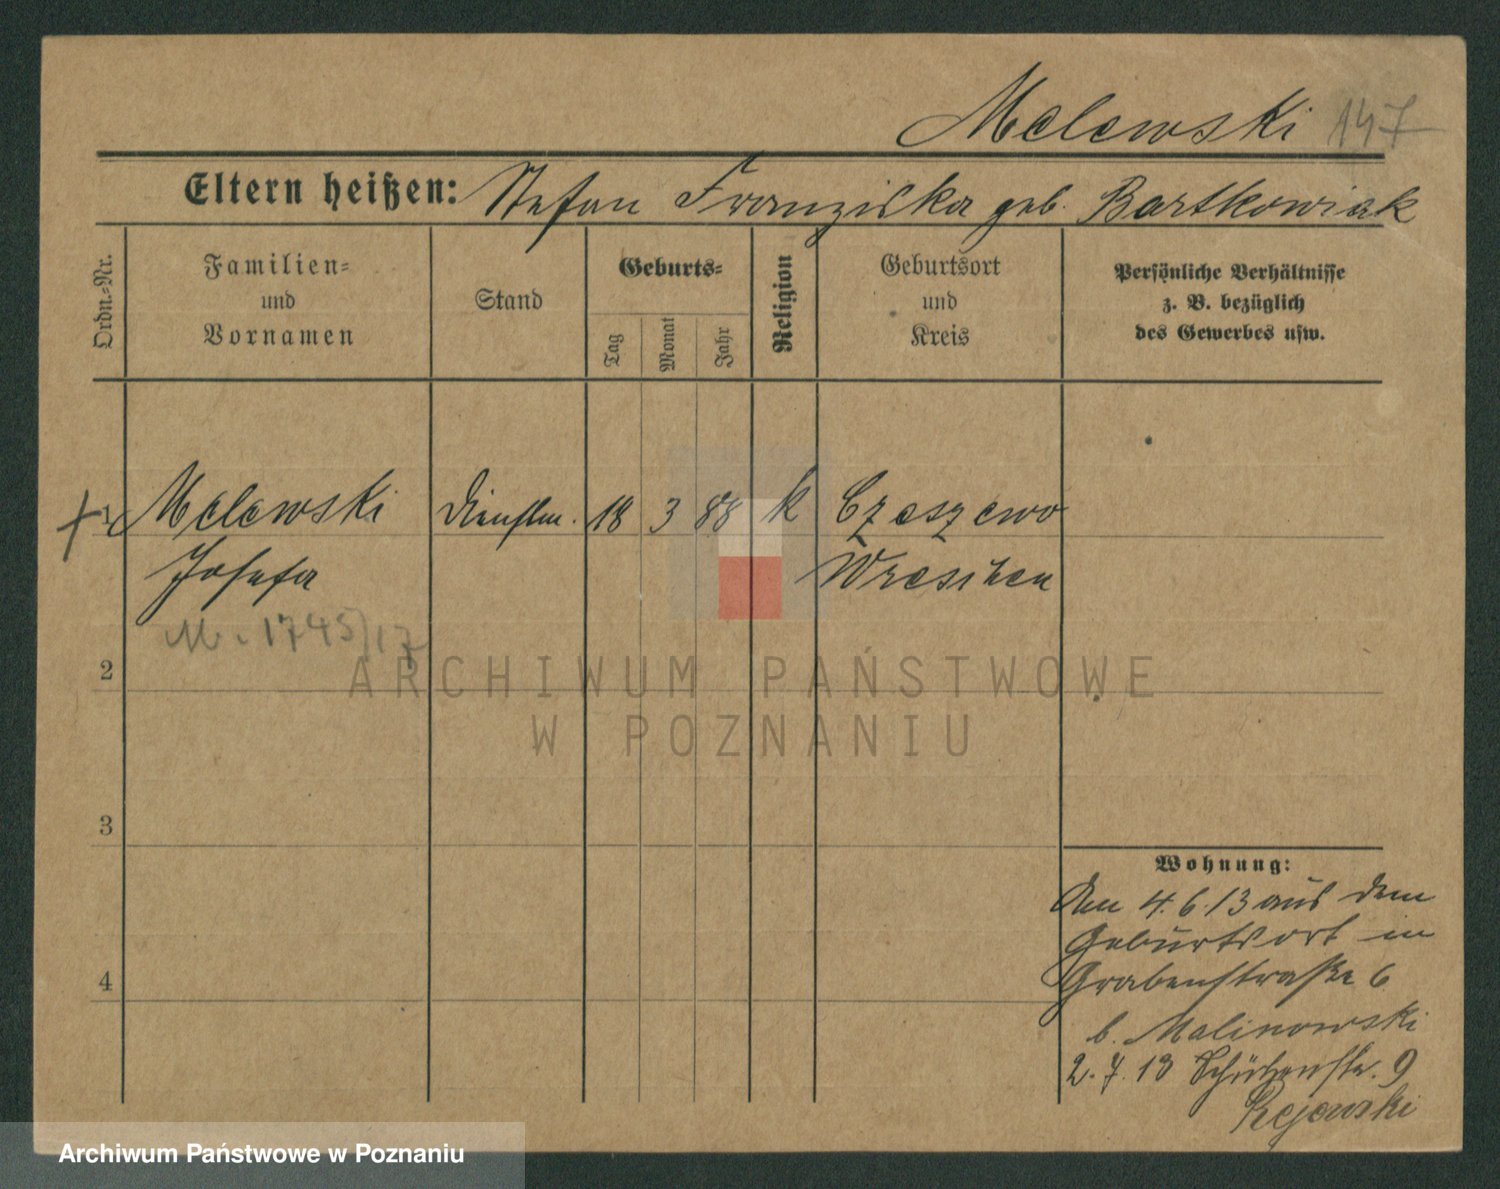 Melewski 147
Eltern heißen: Stefan Franziska geb. Bartkowiak
Ordn.-Nr.
Familien- und Vornamen
Stand
Geburts-
Tag
Monat
Jahr
Religion
Geburtsort und Kreis
Persönliche Verhältnisse
z. B. bezüglich
des Gewerbes usw.
1 Melewski Dienstm. 18 3 88 k Czeszewo
Josefa Wreschen
M. 1745/17
2
3
4
Wohnung:
Den 4.6.13 aus dem
Geburtsort in
Grabenstraße 6
b. Malinowski
2.7.13 Schützenstr. 9
Rejewski
ARCHIWUM PAŃSTWOWE
W POZNANIU
Archiwum Państwowe w Poznaniu